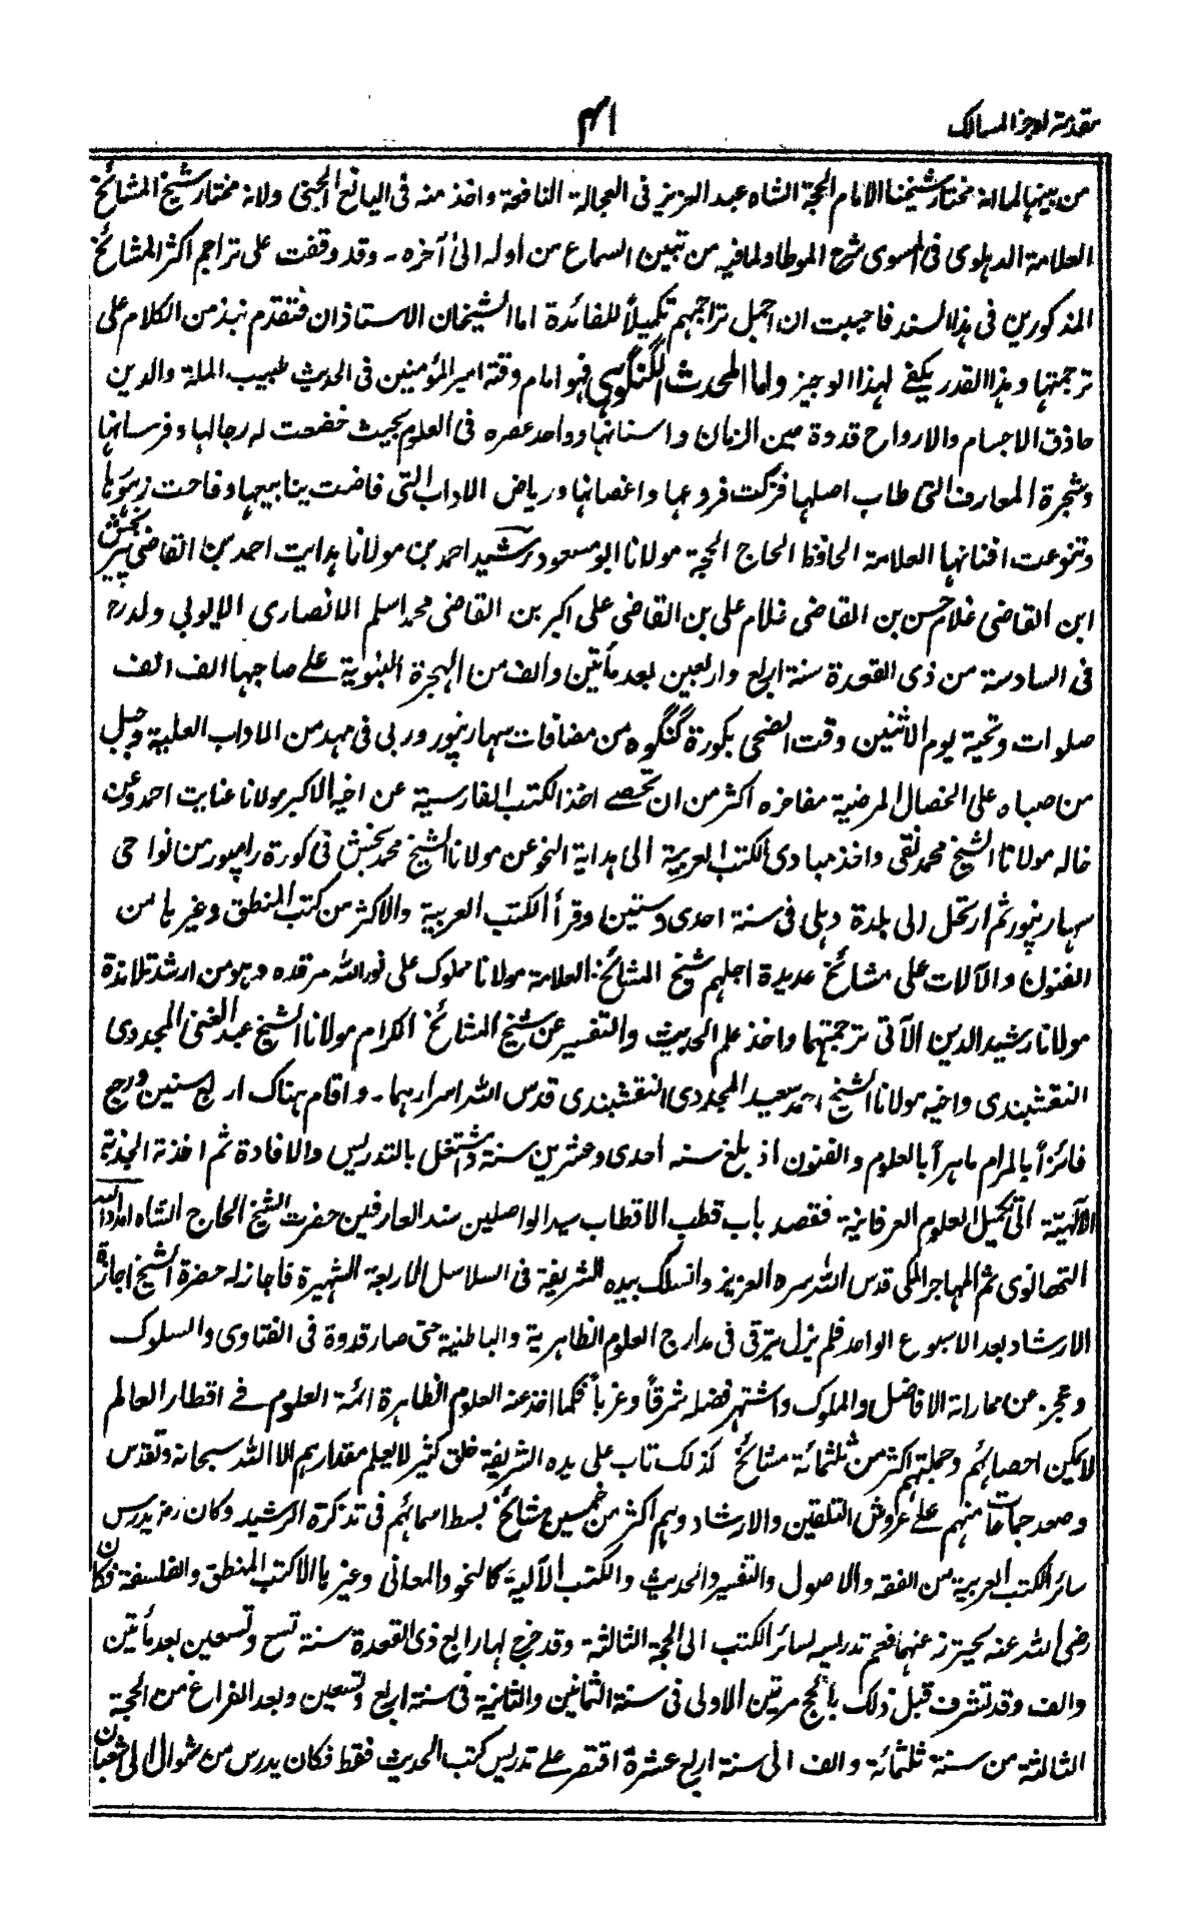 مقدمة اوجز المسالك
۴۱
من بينها لما انه مختار شيخنا الامام الحجة الشاه عبد العزيز فى العجالة النافعة واخذ منه فى اليانع الجنى ولانه مختار شيخ المشائخ
العلامة الدهلوى فى المسوى شرح الموطا ولما فيه من تبيين السماع من اوله الى آخره ۔ وقد وقفت على تراجم اكثر المشائخ
المذكورين فى هذا السند فاحببت ان اجمل تراجمهم تكميلاً للفائدة اما الشيخان الاستاذان فتقدم نبذ من الكلام على
ترجمتهما وهذا القدر يكفى لهذا الوجيز واما المحدث الگنگوہى فهو امام وقته امير المؤمنين فى الحديث طبيب الملة والدين
حاذق الاجسام والارواح قدوة عين الزمان وانسانها وواحد عصره فى العلوم بحيث خضعت له رجالها وفرسانها
وشجرة المعارف التى طاب اصلها فزكت فروعها واغصانها ورياض الاداب التى فاضت ينابيعها وفاحت زهورها
وتنوعت افنانها العلامة الحافظ الحاج الحجة مولانا ابو مسعود رشيد احمد بن مولانا هدايت احمد بن القاضى پير بخش
ابن القاضى غلام حسن بن القاضى غلام على بن القاضى على اكبر بن القاضى محمد اسلم الانصارى الايوبي ولد رح
فى السادسة من ذى القعدة سنة اربع واربعين بعد مأتين والف من الهجرة النبوية على صاحبها الف الف
صلوات وتحية يوم الاثنين وقت الضحى بكورة گنگوه من مضافات سهارنپور وربى فى مهد من الاداب العلية وجبل
من صباه على الخصال المرضية مفاخره اكثر من ان تحصى اخذ الكتب الفارسية عن اخيه الاكبر مولانا عنايت احمد وعن
خاله مولانا الشيخ محمد نقى واخذ مبادى الكتب العربية الى هداية النحو عن مولانا الشيخ محمد بخش فى كورة رامپور من نواحى
سهارنپور ثم ارتحل الى بلدة دهلى فى سنة احدى وستين وقرأ الكتب العربية والاكثر من كتب المنطق وغيرها من
الفنون والآلات على مشائخ عديدة اجلهم شيخ المشائخ العلامة مولانا مملوك على نور الله مرقده وهو من ارشد تلامذة
مولانا رشيد الدين الآتى ترجمتهما واخذ علم الحديث والتفسير عن شيخ المشائخ الكرام مولانا الشيخ عبد الغنى المجددى
النقشبندى واخيه مولانا الشيخ احمد سعيد المجددى النقشبندى قدس الله اسرارهما ۔ واقام هناك اربع سنين ورجع
فائزاً بالمرام ماهراً بالعلوم والفنون اذ بلغ سنه احدى وعشرين سنة واشتغل بالتدريس والافادة ثم اخذته الجذبة
الآلهيّة الى تكميل العلوم العرفانية فقصد باب قطب الاقطاب سيد الواصلين سند العارفين حضرت الشيخ الحاج الشاه امداد الله
التهانوى ثم المهاجر المكى قدس الله سره العزيز وانسلك بيده الشريفة فى السلاسل الاربعة الشهيرة فاجاز له حضرة الشيخ اجازة
الارشاد بعد الاسبوع الواحد فلم يزل يترقى فى مدارج العلوم الظاهرية والباطنية حتى صار قدوة فى الفتاوى والسلوك
وعجز عن مماراته الافاضل والملوك واشتهر فضله شرقاً وغرباً فكما اخذ عنه العلوم الظاهرة ائمة العلوم فى اقطار العالم
لا يمكن احصائهم وجملتهم اكثر من ثلثمائة مشائخ كذلك تاب على يده الشريفة خلق كثير لا يعلم مقدارهم الا الله سبحانه وتقدس
وصعد جماعات منهم على عروش التلقين والارشاد وهم اكثر من خمسين مشائخ بسط اسمائهم فى تذكرة الرشيد وكان رح يدرس
سائر الكتب العربية من الفقه والاصول والتفسير والحديث والكتب الآلية كالنحو والمعانى وغيرها الا كتب المنطق والفلسفة فكان
رضى الله عنه يحترز عنهما فعم تدريسه لسائر الكتب الى الحجة الثالثة وقد خرج لها رابع ذى القعدة سنة تسع وتسعين بعد مأتين
والف وقد تشرف قبل ذلك بالحج مرتين الاولى فى سنة الثمانين والثانية فى سنة اربع وتسعين وبعد الفراغ من الحجة
الثالثة من سنة ثلثمائة والف الى سنة اربع عشرة اقتصر على تدريس كتب الحديث فقط فكان يدرس من شوال الى شعبان